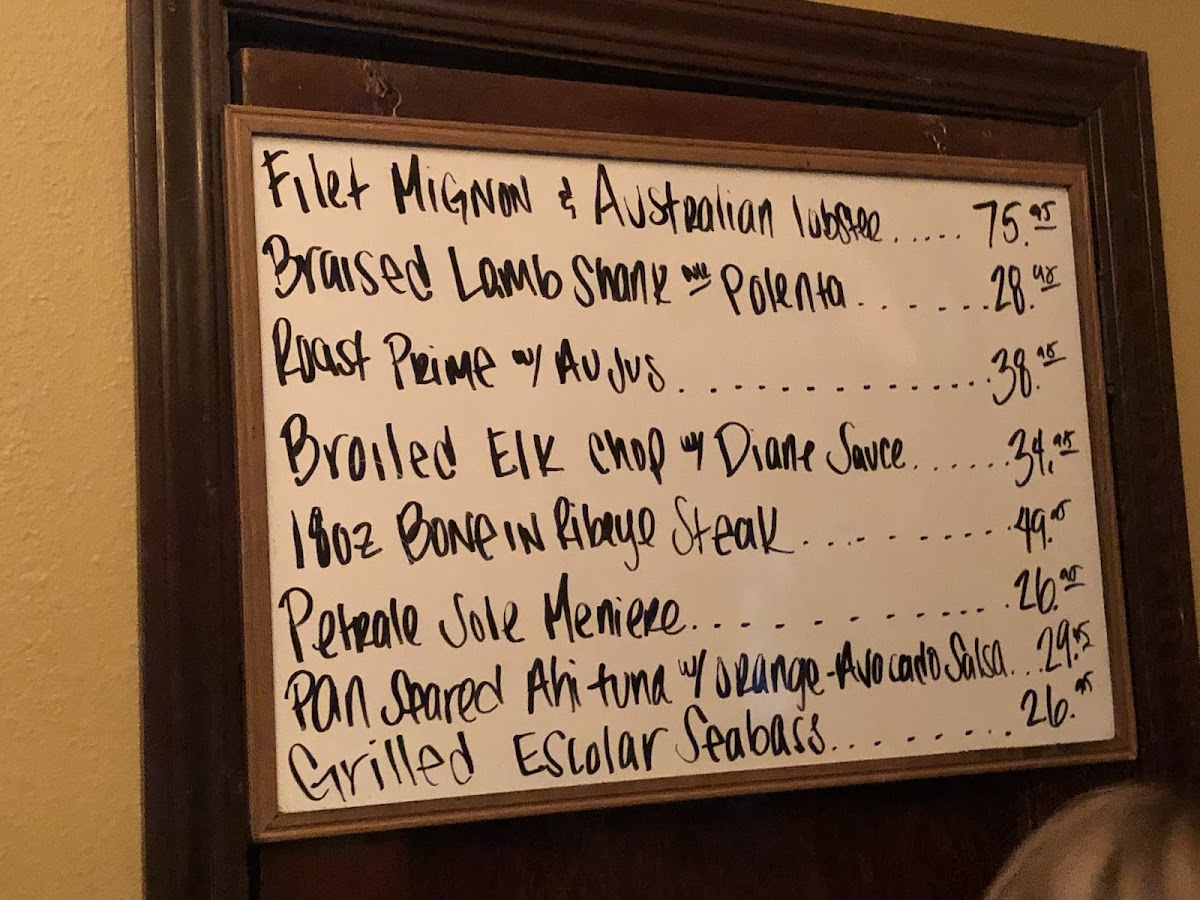 Filet Mignon & Australian lobster..... 75.95
Braised Lamb Shank Polenta....... 28.95
Roast Prime w/ Au Jus............... 38.95
Broiled Elk Chop w/ Diane Sauce...... 34.95
18oz Bone in Ribeye Steak.......... 49.95
Petrale Sole Meniere............ 26.95
Pan Seared Ahi tuna w/ Orange-Avocado Salsa.. 29.95
Grilled Escolar Seabass......... 26.95